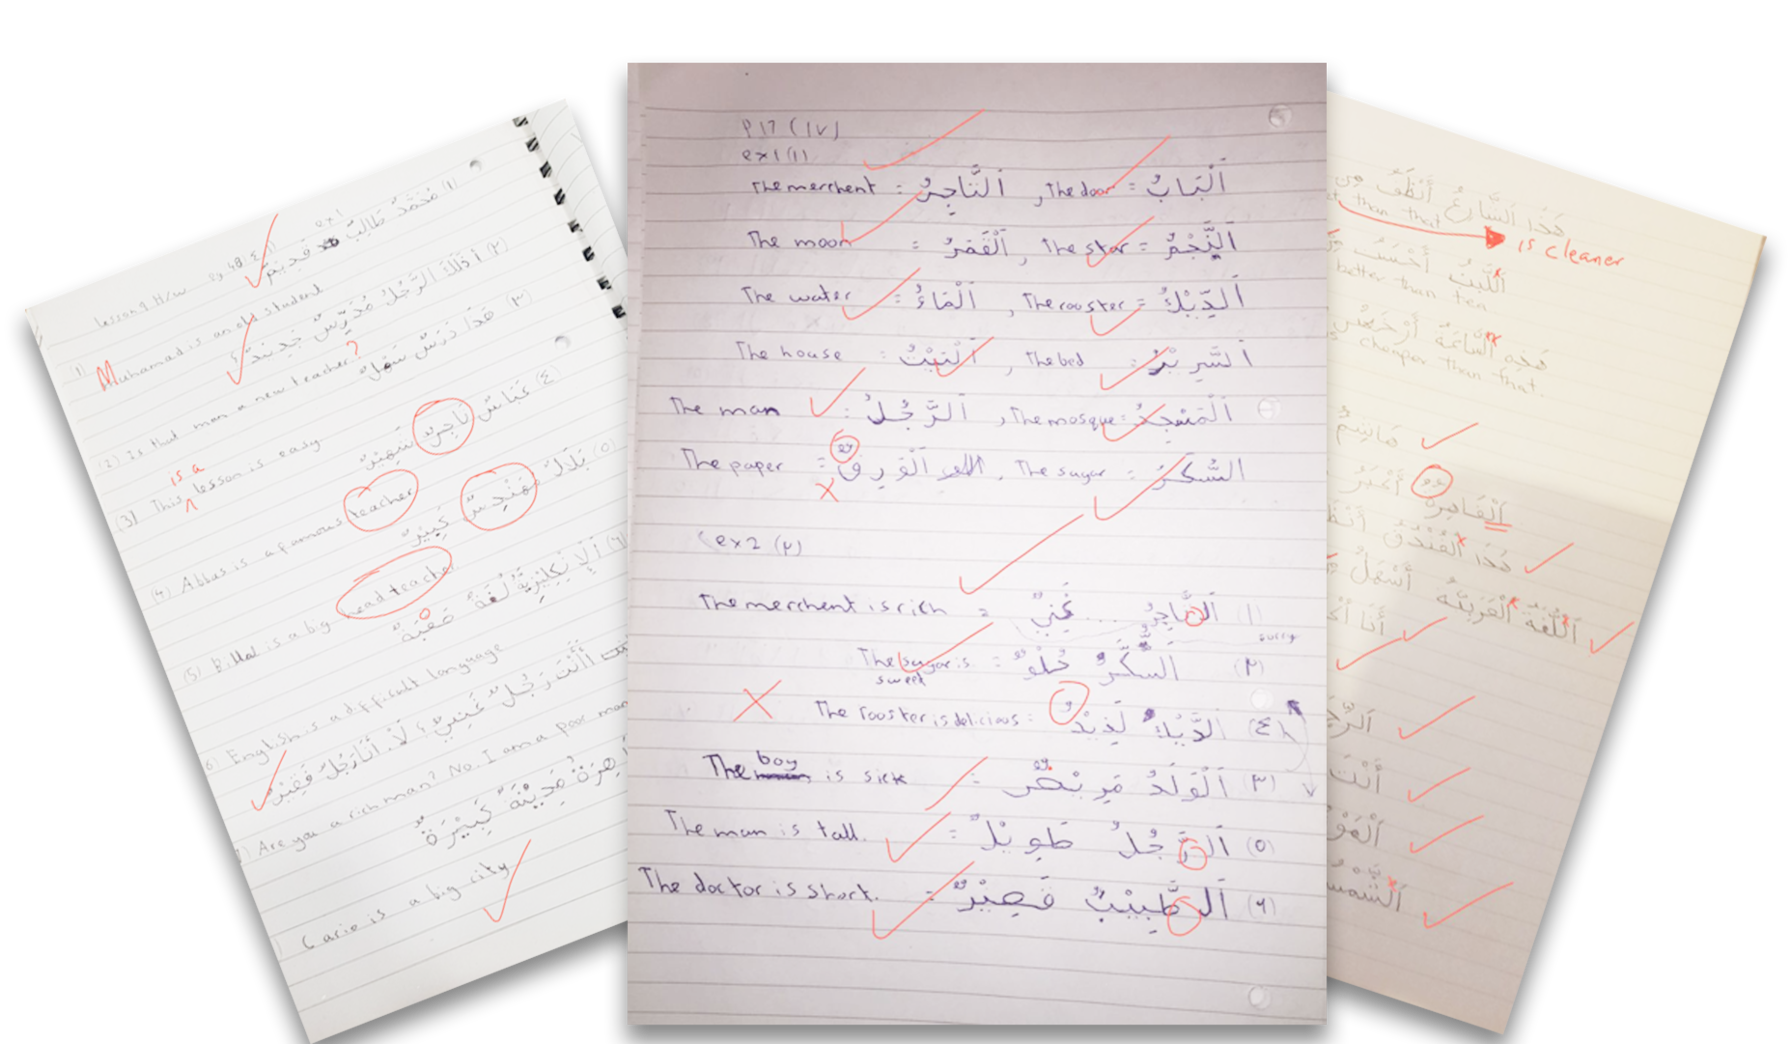 Lesson 9 H/w Pg 48
ex 1
(١) مُحَمَّدٌ طَالِبٌ قَدِيمٌ
(1) Muhammad is an old student
(٢) أَذَلِكَ الرَّجُلُ مُدَرِّسٌ جَدِيدٌ؟
(2) Is that man a new teacher?
(٣) هَذَا دَرْسٌ سَهْلٌ
is a
(3) This lesson is easy
(٤) عَبَّاسٌ تَاجِرٌ شَهِيْرٌ
(4) Abbas is a famous teacher
(٥) بِلَالٌ مُهَنْدِسٌ كَبِيْرٌ
(5) Billal is a big head teacher
(٦) لُغَةٌ صَعْبَةٌ
(6) English is a difficult language
أَأَنْتَ رَجُلٌ غَنِيٌّ؟ لَا. أَنَا رَجُلٌ فَقِيْرٌ
Are you a rich man? No. I am a poor man
مَدِيْنَةٌ كَبِيْرَةٌ
Cario is a big city
P 17 (١٧)
ex 1 (١)
The merchent = اَلتَّاجِرُ , The door = اَلْبَابُ
The moon = اَلْقَمَرُ , The star = اَلنَّجْمُ
The water = اَلْمَاءُ , The rooster = اَلدِّيْكُ
The house = اَلْبَيْتُ , The bed = اَلسَّرِيْرُ
The man = اَلرَّجُلُ , The mosque = اَلْمَسْجِدُ
The paper = اَلْوَرِقُ , The sugar = السُّكَّرُ
ex 2 (٢)
The merchent is rich = اَلتَّاجِرُ .... غَنِيٌّ (١)
sorry
The sugar is sweet = اَلسُّكَّرُ حُلْوٌ (٢)
The rooster is delicious = اَلدِّيْكُ لَذِيْذٌ (٤)
The boy is sick = اَلْوَلَدُ مَرِيْضٌ (٣)
The man is tall. = اَلرَّجُلُ طَوِيْلٌ (٥)
The doctor is short. = اَلطَّبِيْبُ قَصِيْرٌ (٦)
هَذَا الشَّارِعُ أَنْظَفُ مِن
than that
is cleaner
اَللَّبَنُ أَحْسَنُ
better than tea
هَذِهِ السَّاعَةُ أَرْخَصُ
cheaper than that.
اَلْقَاهِرَةُ أَكْبَرُ
هَذَا الْفُنْدُقُ
اَللُّغَةُ الْعَرَبِيَّةُ أَسْهَلُ
أَنَا
أَنْتَ
اَلشَّمْسُ